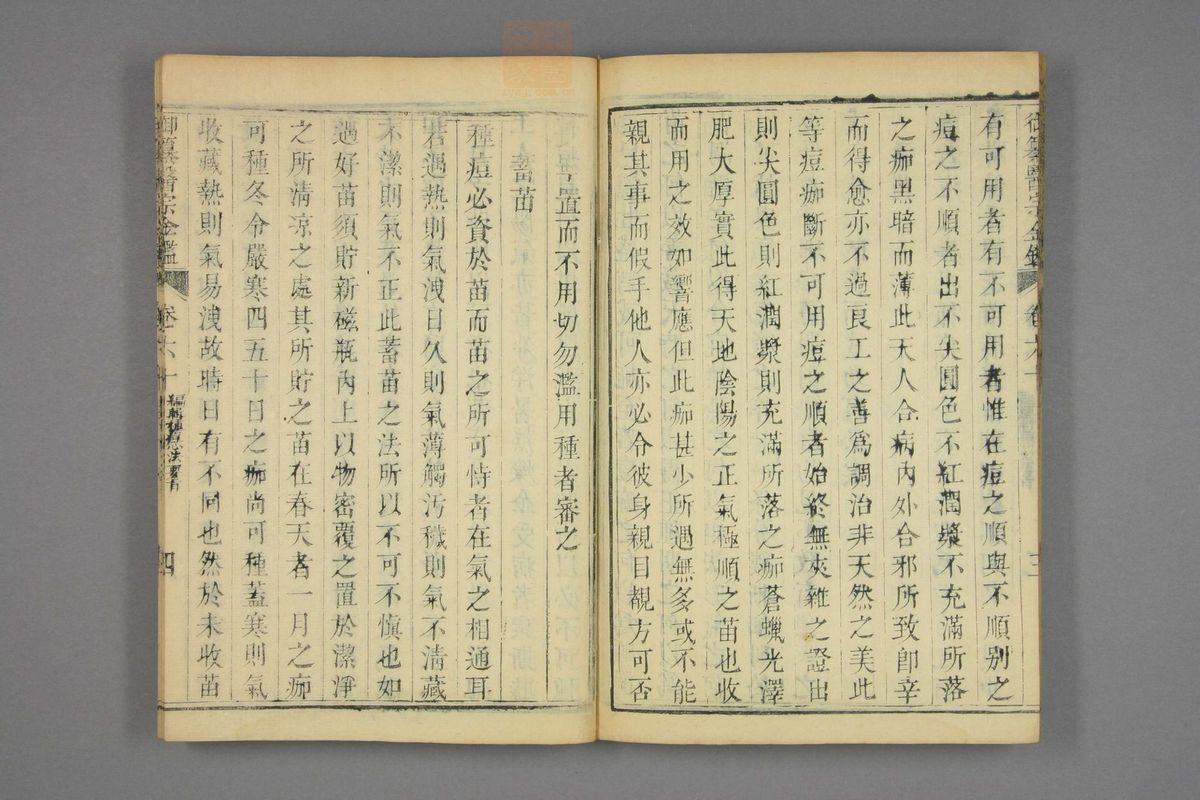 御纂醫宗金鑑 卷六十 三
有可用者有不可用者惟在痘之順與不順別之
痘之不順者出不尖圓色不紅潤漿不充滿所落
之痂黑暗而薄此天人合病內外合邪所致卽幸
而得愈亦不過良工之善爲調治非天然之美此
等痘痂斷不可用痘之順者始終無夾雜之證出
則尖圓色則紅潤漿則充滿所落之痂蒼蠟光澤
肥大厚實此得天地陰陽之正氣極順之苗也收
而用之效如響應但此痂甚少所遇無多或不能
親其事而假手他人亦必令彼身親目覩方可否
置而不用切勿濫用種者審之
蓄苗
種痘必資於苗而苗之所可恃者在氣之相通耳
若遇熱則氣洩日久則氣薄觸污穢則氣不清藏
不潔則氣不正此蓄苗之法所以不可不慎也如
遇好苗須貯新磁瓶內上以物密覆之置於潔淨
之所清涼之處其所貯之苗在春天者一月之痂
可種冬令嚴寒四五十日之痂尚可種蓋寒則氣
收藏熱則氣易洩故時日有不同也然於未收苗
御纂醫宗金鑑 卷六十 編輯種痘心法要旨 四